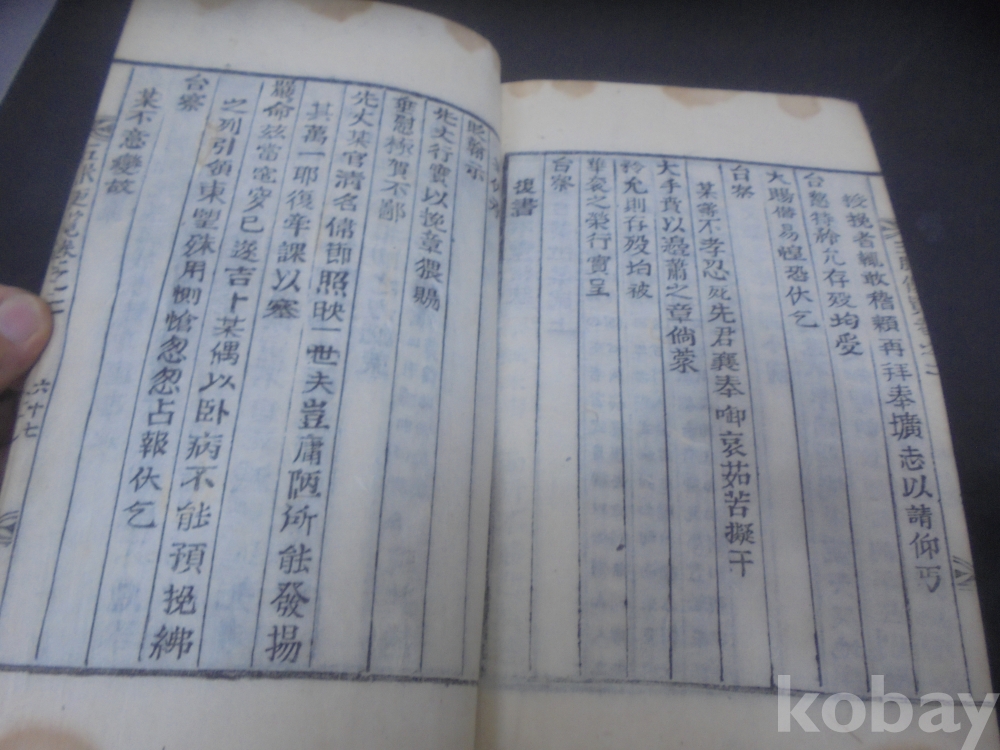 授挽者輒敢稽顙再拜奉壙志以請仰丐
台慈特矜允存歿均受
大賜僭易惶恐伏乞
台察
某罪不孝忍死先君襄奉啣哀茹苦擬干
大手賁以薤蕭之章倘蒙
矜允則存歿均被
華袞之榮行實呈
台察
復書
先丈行實以挽章猥賜
垂慰極賀不鄙
先大某官清名偹節照映一世夫豈庸陋所能發揚
其萬一耶復牽課以塞
嚴命茲當窀穸已遂吉卜某偶以卧病不能預挽紼
之列引領東望殊用惻愴怱怱占報伏乞
台察
某不意變故
六十七
kobay